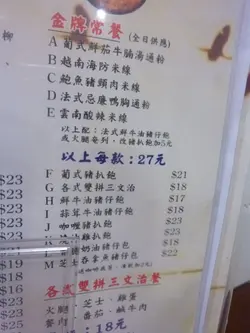 金牌常餐 (全日供應)
柳
A 葡式鮮茄牛腩湯通粉
B 越南海防米線
C 鮑魚豬頸肉米線
D 法式忌廉鴨胸通粉
E 雲南酸辣米線
以上配：法式鮮牛油豬仔飽
或火腿奄列，改豬扒飽加5元
以上每款：27元
F 葡式豬扒飽 $21
G 各式雙拼三文治 $18
H 鮮牛油豬仔飽 $18
I 蒜茸牛油豬仔飽 $17
J 咖喱豬扒飽
豬仔包 $18
M 芝士吞拿魚豬仔包 $22
$23
$23
$23
$23
$23
$23
$16
$23
$25
各式雙拼三文治餐
火腿、芝士、雞蛋
餐肉、番茄、鹹牛肉
18元